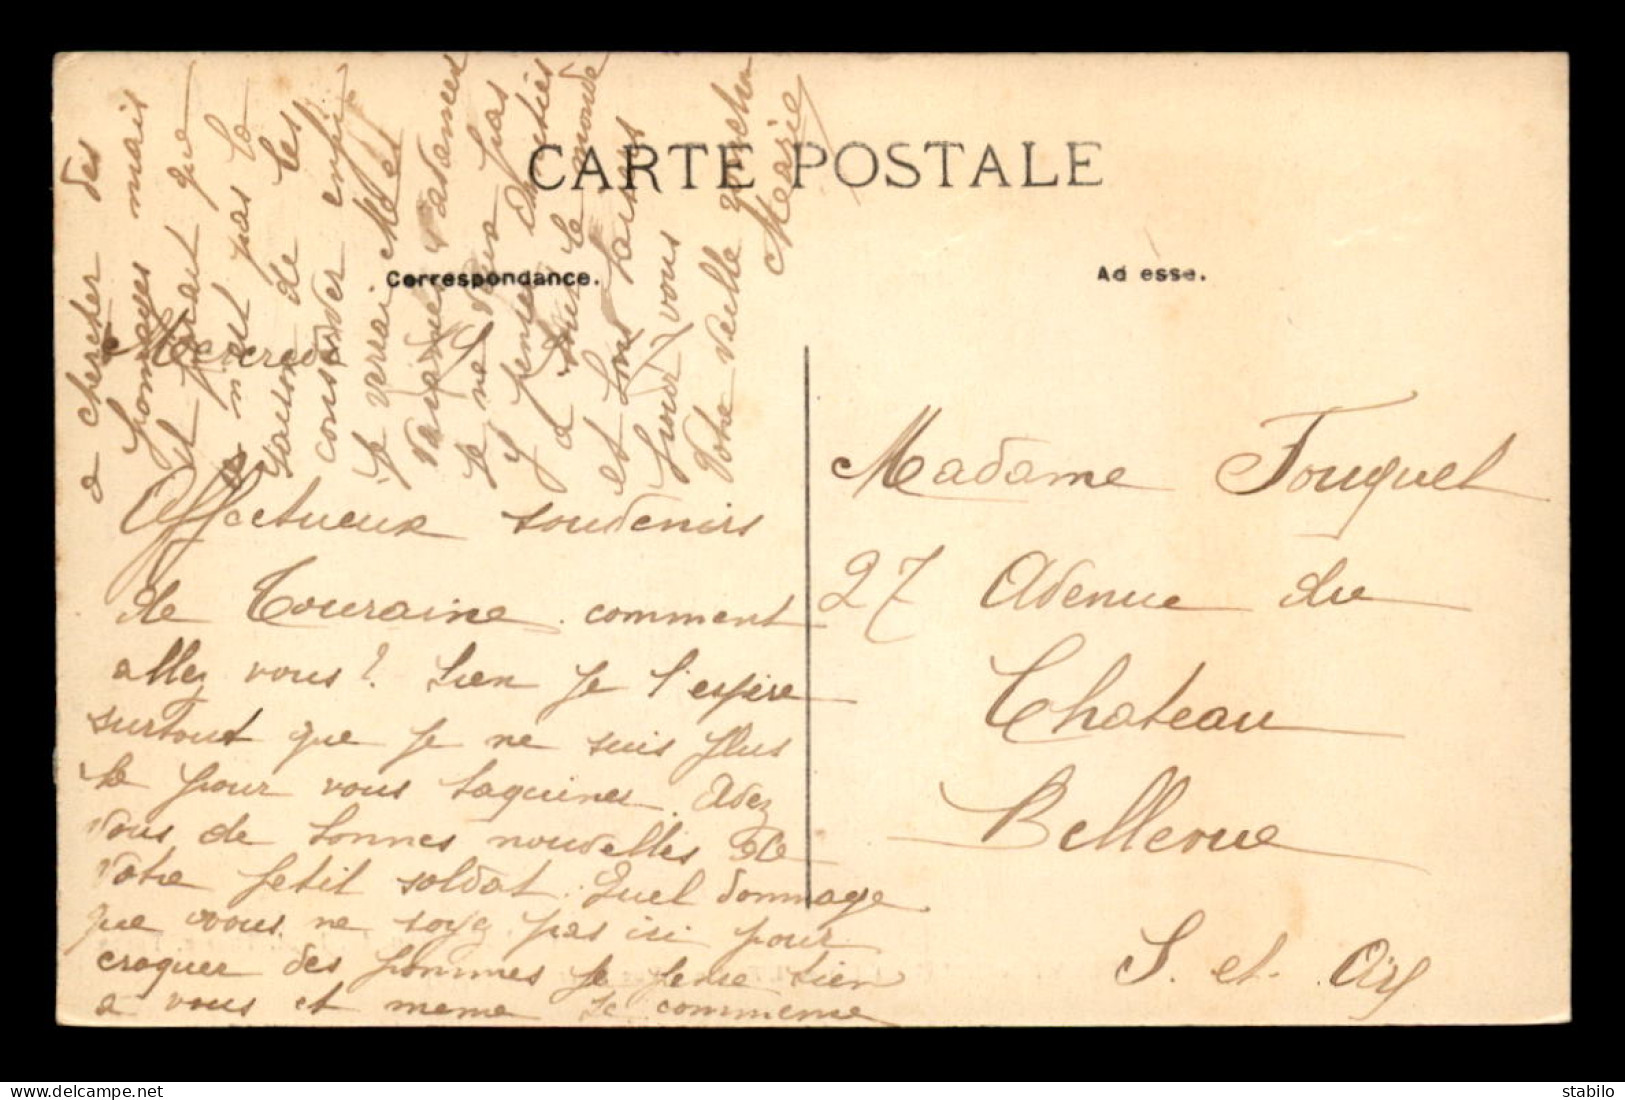 CARTE POSTALE
Correspondance.
Ad esse.
Mercredi
Affectueux souvenirs
de Touraine. comment
allez vous? bien je l'espère
surtout que je ne suis plus
la pour vous taquiner. Avez
vous de bonnes nouvelles de
votre petit soldat. Quel dommage
que vous ne soyez pas ici pour
croquer des pommes je pense bien
a vous et meme je commence
a chercher des
pommes mais
il parait que
n'est pas la
saison de les
conserver enfin
je verrai Mes
vacances avancees
je ne veux pas
y penser Amities
a tous le monde
et bons baisers
pour vous
Votre vieille
Marie
Madame Fouquet
27 Avenue du
Chateau
Bellevue
S. et. Oise
stabilo